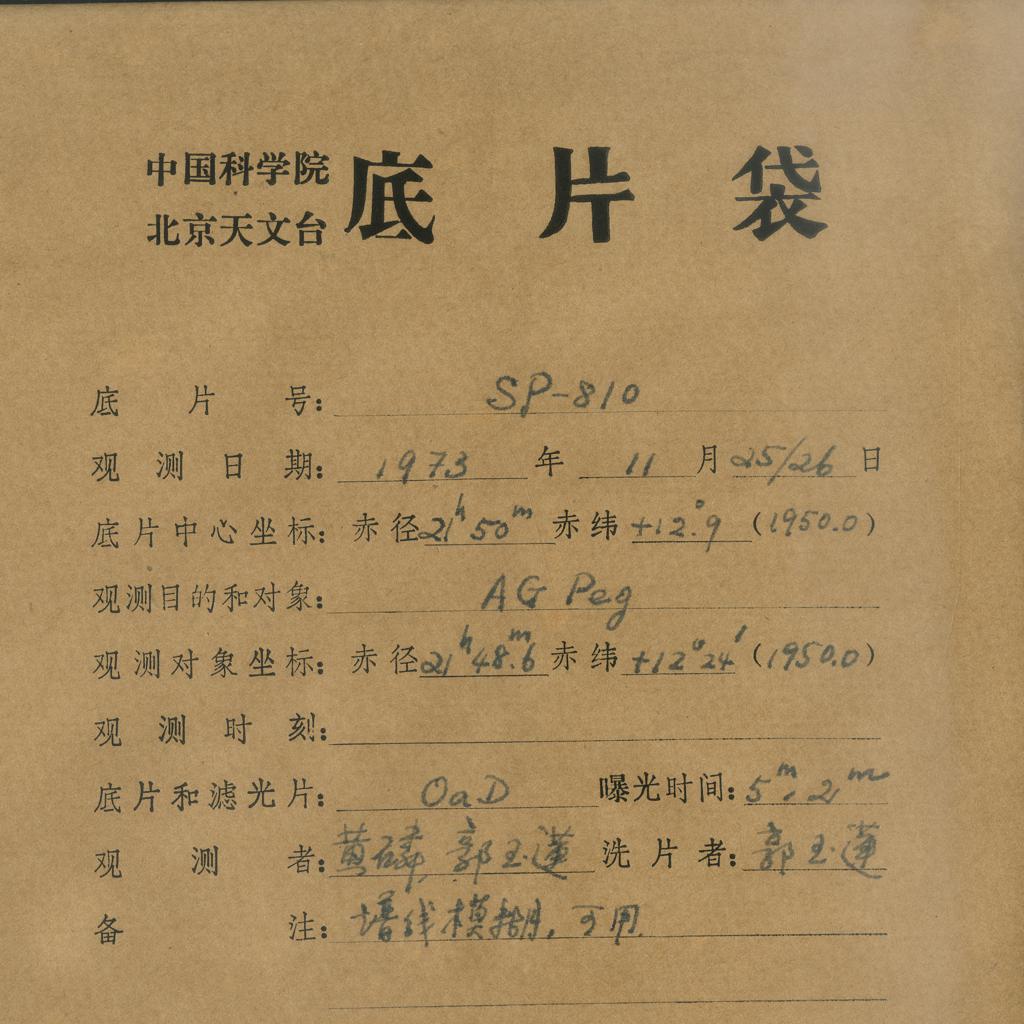 中国科学院
北京天文台
底片袋
底片号: SP-810
观测日期: 1973 年 11 月 25/26 日
底片中心坐标: 赤径 21h 50m 赤纬 +12°.9 (1950.0)
观测目的和对象: AG Peg
观测对象坐标: 赤径 21h 48m.6 赤纬 +12°24′ (1950.0)
观测时刻:
底片和滤光片: OaD 曝光时间: 5m, 2m
观测者: 黄磷, 郭玉莲 洗片者: 郭玉莲
备注: 线模糊, 可用.